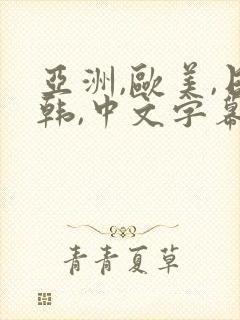 亞洲,歐美,日
韩,中文字幕
青青夏草